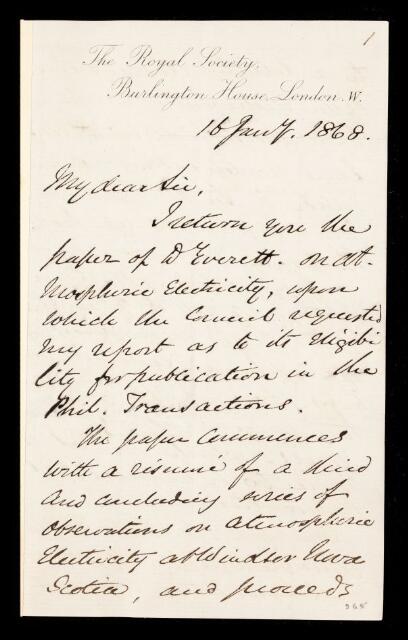 1
The Royal Society,
Burlington House, London. W.
16 Jany. 1868.
My dear Sir,
I return you the
paper of Dr Everett. on At-
mospheric Electricity, upon
which the Council requested
my report as to its eligibi
lity for publication in the
Phil. Transactions.
The paper commences
with a résumé of a third
and concluding series of
observations on atmospheric
Electricity at Windsor Nova
Scotia, and proceeds